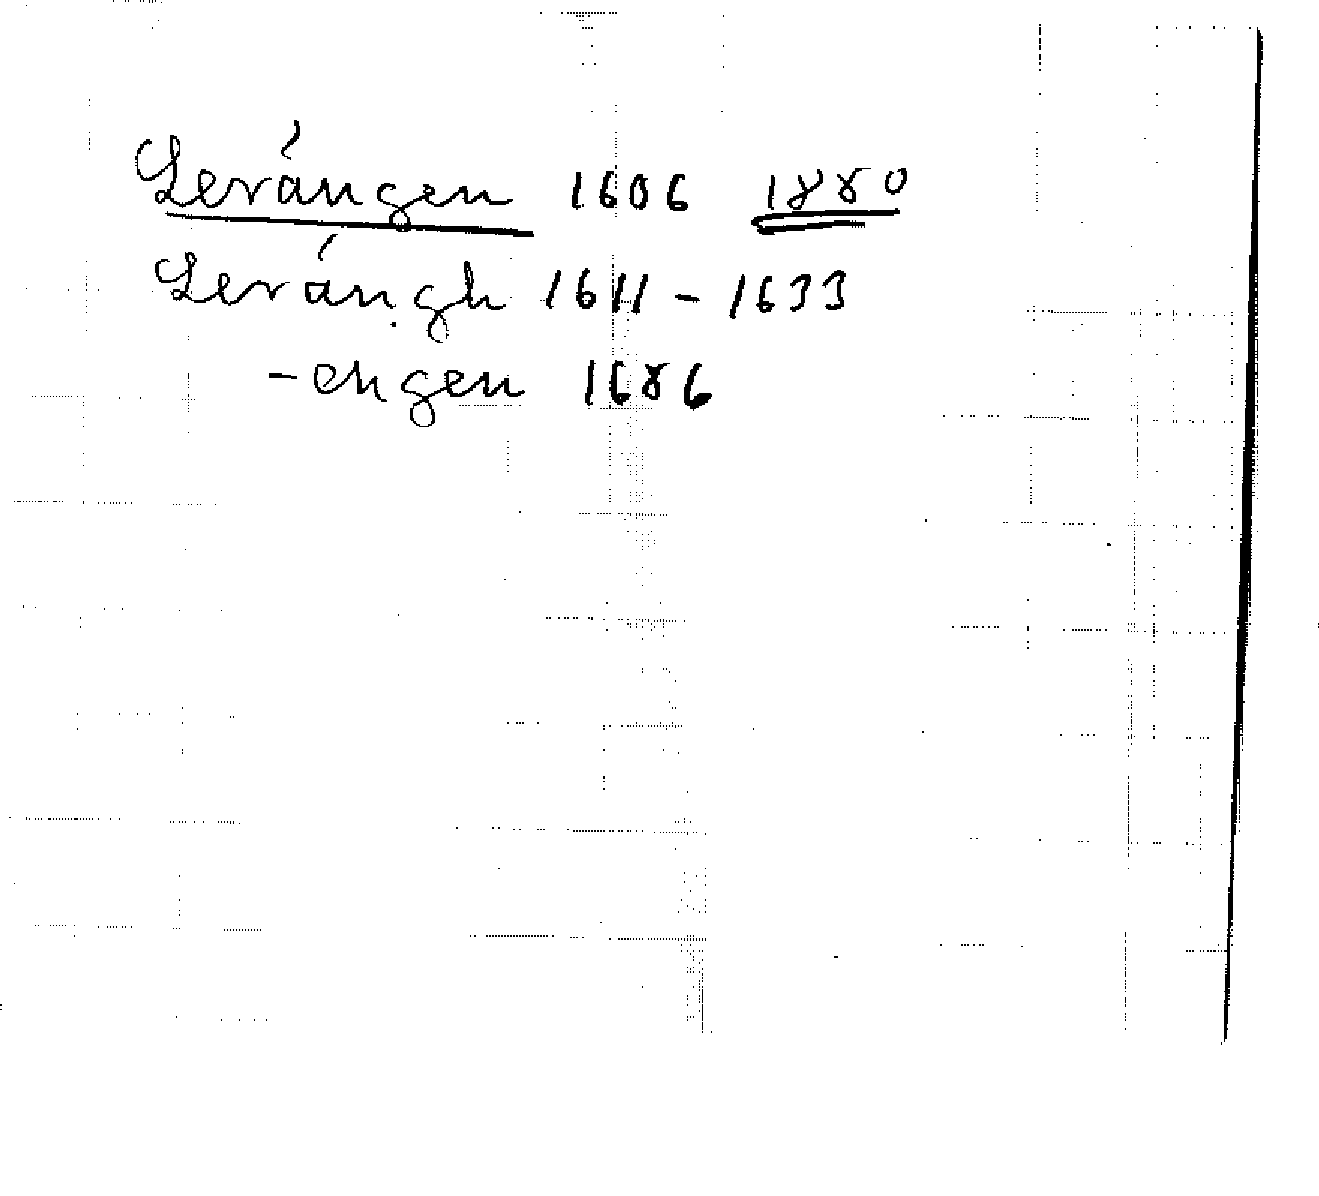 Lerángen 1606 1880
Lerángh 1611 - 1633
- engen 1686